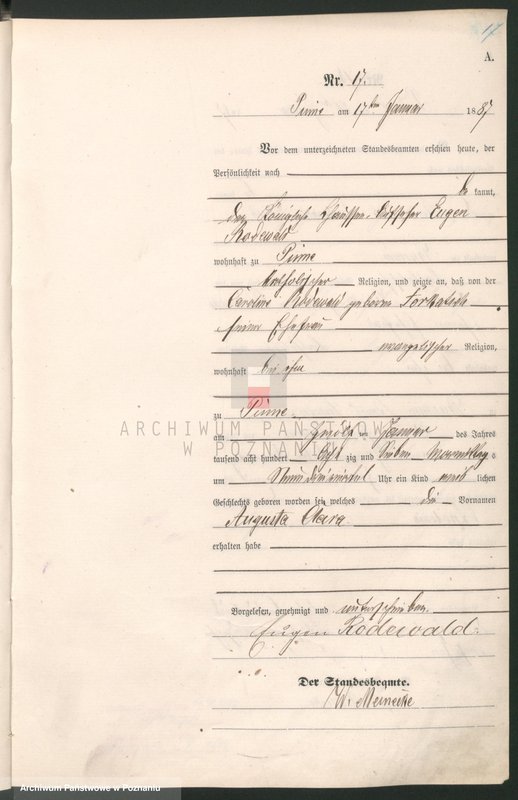 17
A.
Nr. 17.
Pinne am 17ten Januar 1887
Vor dem unterzeichneten Standesbeamten erschien heute, der
Persönlichkeit nach
be kannt,
der Königliche Chaussee-Aufseher Eugen
Rodewald
wohnhaft zu Pinne
katholischer Religion, und zeigte an, daß von der
Caroline Rodewald geborne
seiner Ehefrau
evangelischer Religion,
wohnhaft bei ihm
zu Pinne
am zwölften Januar des Jahres
tausend acht hundert acht zig und sieben Vormittags
um Uhr ein Kind weib lichen
Geschlechts geboren worden sei, welches die Vornamen
Augusta Clara
erhalten habe
Vorgelesen, genehmigt und unterschrieben.
Eugen Rodewald.
Der Standesbeamte.
W. Meinecke
ARCHIWUM PAŃSTWOWE
W POZNANIU
Archiwum Państwowe w Poznaniu